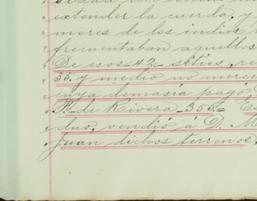 extender la cuerda, y
mores de los indios
frecuentaban aquellos
De esos 42 sitios, re
36 y medio no merec
cuya demasía pagó
P. de Rivera 356 = E
duo, vendió á D. M
Juan dichos terrenos,